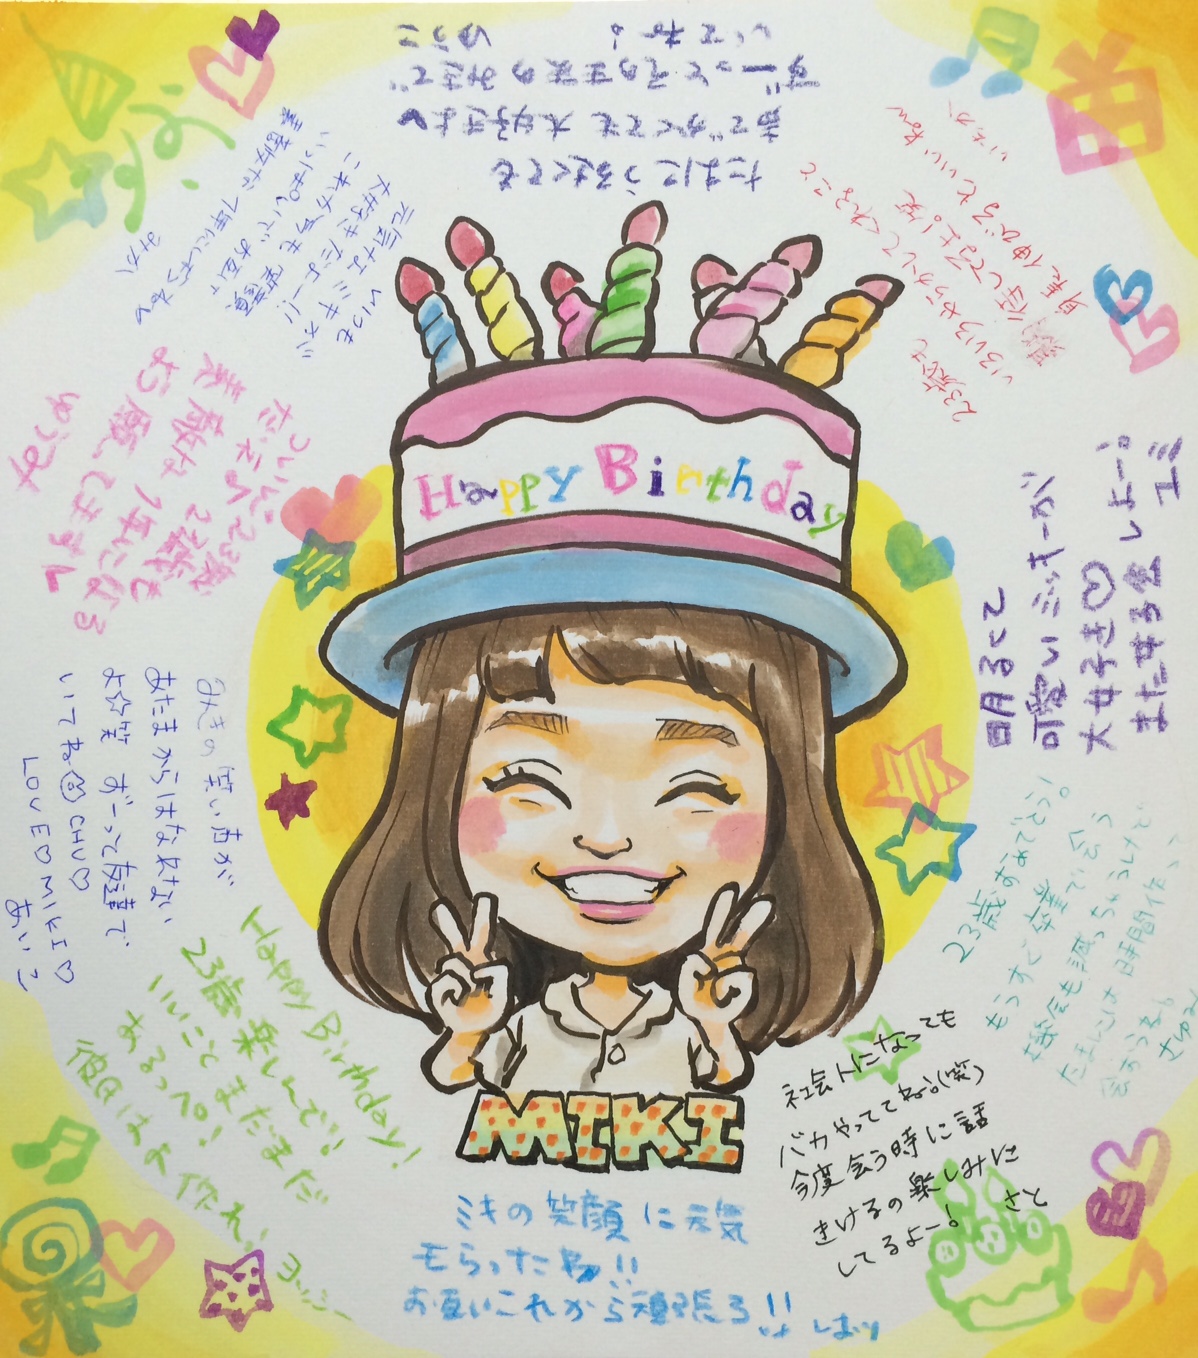 Happy Birthday
MIKI
たまにうるさくても
声でかくても大好きよ♥
ずーっとその笑顔のみきで
いてね!
ゆうこ
23歳も
いろいろやらかしてくれること
期待してるよ!笑
身長伸びるといいねw
いちか
明るくて
可愛いミッキーが
大好き♡
また女子会しよー!
ユミ
23歳おめでとう!
もうすぐ卒業で会う
機会も減っちゃうけど
たまには時間作って
会おうな!
社会人になっても
バカやっててね!(笑)
今度会う時に話
きけるの楽しみに
してるよー!
さと
ミキの笑顔に元気
もらったわ!!
お互いこれから頑張ろ!!
しほり
Happy Birthday!
23歳楽しんで!!
いいことまだまだ
あるっぺ!
彼氏はよ作れ!
ヨッシー
みきの笑い声が
あたまからはなれない
よ☆笑 ずーっと友達で
いてね CHU♡
LOVE♡MIKI♡
あいこ
ついに23歳
だってさ
23歳も
素敵な1年になる
お願してます
元気なミキが
大好きだよー!!
これからも笑顔
いっぱいでお互い
素敵な1年にしようね
みか